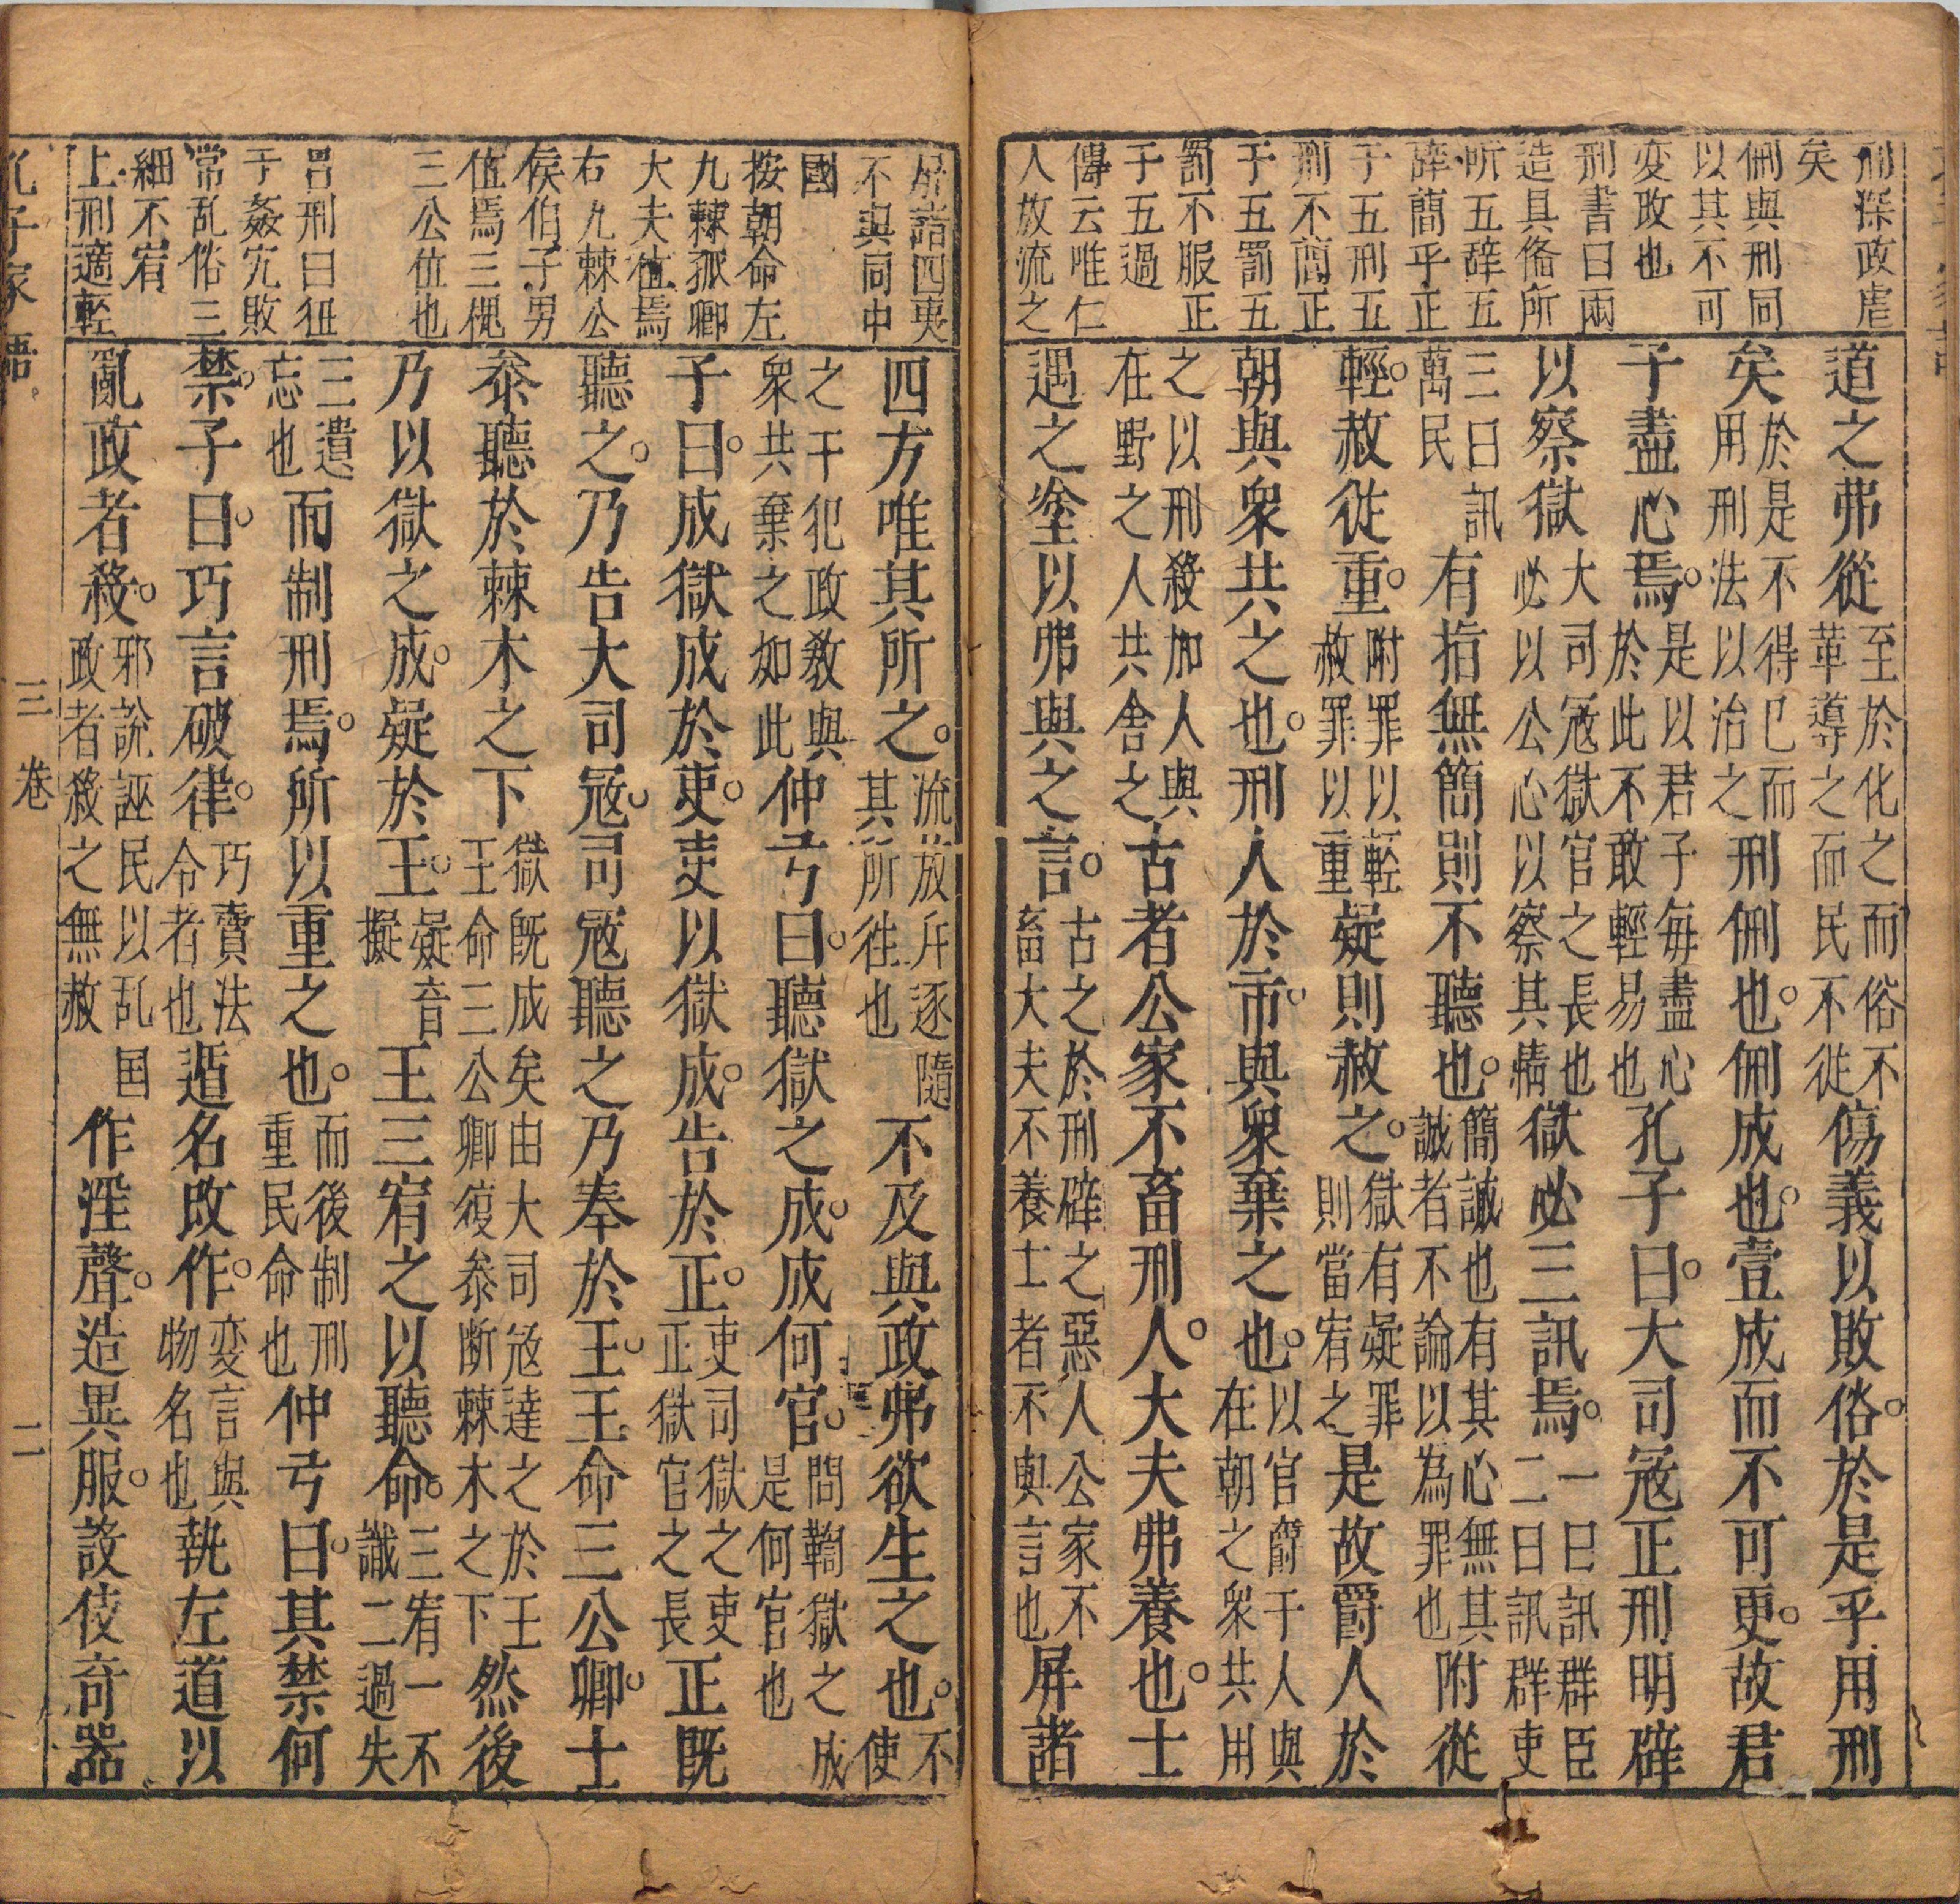 刑深政虐
矣
侀與刑同
以其不可
変政也
刑書曰兩
造具俻所
听五辞五
辞簡乎正
于五刑五
刑不簡正
于五罰五
罰不服正
于五過
傳云唯仁
人放流之
道之弗從至於化之而俗不革導之而民不從傷義以敗俗。於是乎用刑
矣於是不得已而用刑法以治之刑侀也。侀成也。壹成而不可更。故君
子盡心焉。是以君子毎盡心於此不敢輕易也孔子曰。大司冦正刑明辟
以察獄大司冦獄官之長也必以公心以察其情獄必三訊焉。一曰訊群臣二曰訊群吏
三曰訊萬民有指無簡則不聽也。簡誠也有其心無其誠者不論以為罪也附從
輕。赦從重。附罪以輕赦罪以重疑則赦之。獄有疑罪則當宥之是故爵人於
朝與衆共之也。刑人於市。與衆棄之也。以官爵于人與在朝之衆共用
之以刑殺加人與在野之人共舍之古者公家不畜刑人。大夫弗養也。士
遇之塗以弗與之言。古之於刑辟之惡人公家不畜大夫不養士者不與言也屏諸
屏諸四夷
不與同中
國
按朝命左
九棘孤卿
大夫值焉
右九棘公
侯伯子男
值焉三槐
三公位也
吕刑曰狃
于姦宄敗
常乱俗三
細不宥
上刑適輕
四方唯其所之。流放斥逐隨其所徃也不及與政弗欲生之也。不使
之干犯政教與衆共棄之如此仲弓曰。聽獄之成。成何官。問鞫獄之成是何官也
子曰。成獄成於吏。吏以獄成。告於正。吏司獄之吏正獄官之長正既
聽之。乃告大司冦。司冦聽之乃奉於王。王命三公卿。士
叅聽於棘木之下獄既成矣由大司冦達之於王王命三公卿復叅断棘木之下然後
乃以獄之成。疑於王。疑音擬王三宥之以聽命。三宥一不識二過失
三遺忘也而制刑焉。所以重之也。而後制刑重民命也仲弓曰。其禁何
禁。子曰。巧言破律。巧賣法令者也遁名改作。変言與物名也執左道以
亂政者殺。邪說誣民以乱国政者殺之無赦作淫聲。造異服。設伎奇器
孔子家語 三卷 二